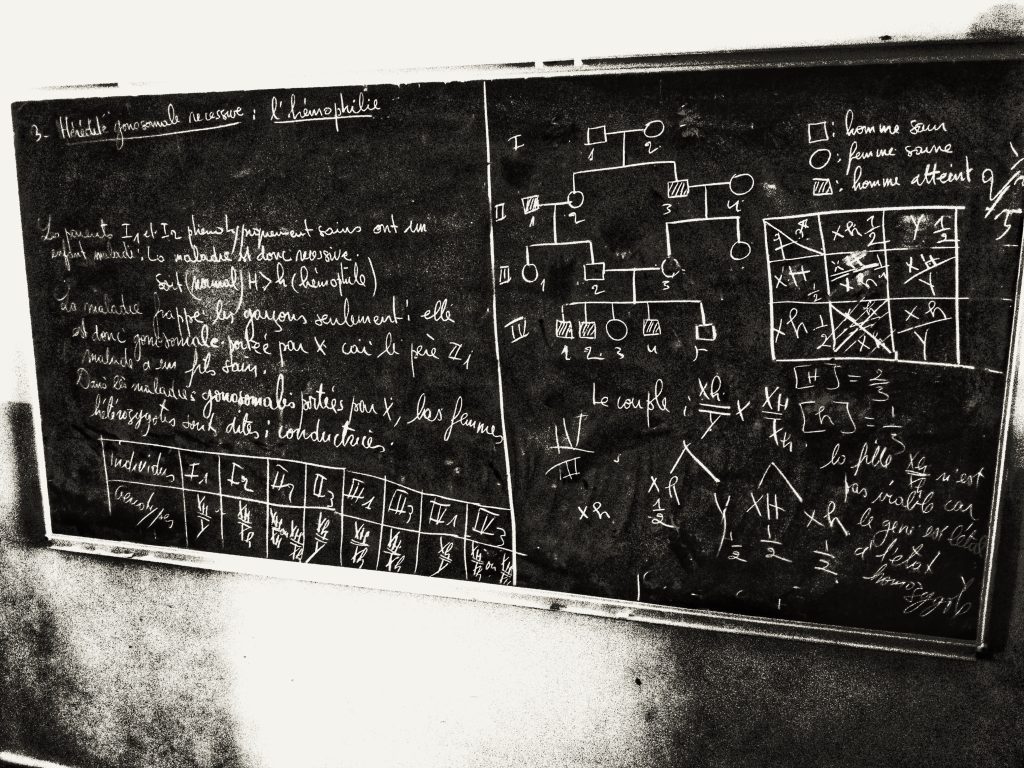 3- Hérédité gonosomale recessive : l'hémophilie
Les parents I1 et I2 phenotypiquement sains ont un
enfant malade. La maladie est donc recessive.
soit (normal) H > h (hémophile)
La maladie frappe les garçons seulement : elle
est donc gonosomale portée par X car le père II1
malade a un fils sain.
Dans les maladies gonosomales portées par X, les femmes
hétérozygotes sont dites : conductrices.
Individus I1 I2 II2 II3 III1 III3 IV1 IV3
Genotypes
I 1 2
II 1 2 3 4
III 1 2 3
IV 1 2 3 4 5
: homme sain
: femme saine
: homme atteint
Xh 1/2 Y 1/2
XH 1/2 XH/Y
Xh 1/2 Xh/Y
[H] = 2/3
[h] = 1/3
Le couple : Xh/Y X XH/Xh
Xh 1/2 Y 1/2 XH 1/2 Xh 1/2
Xh
la fille Xh/Xh n'est
pas viable car
le gène est létal
à l'état
homozygote